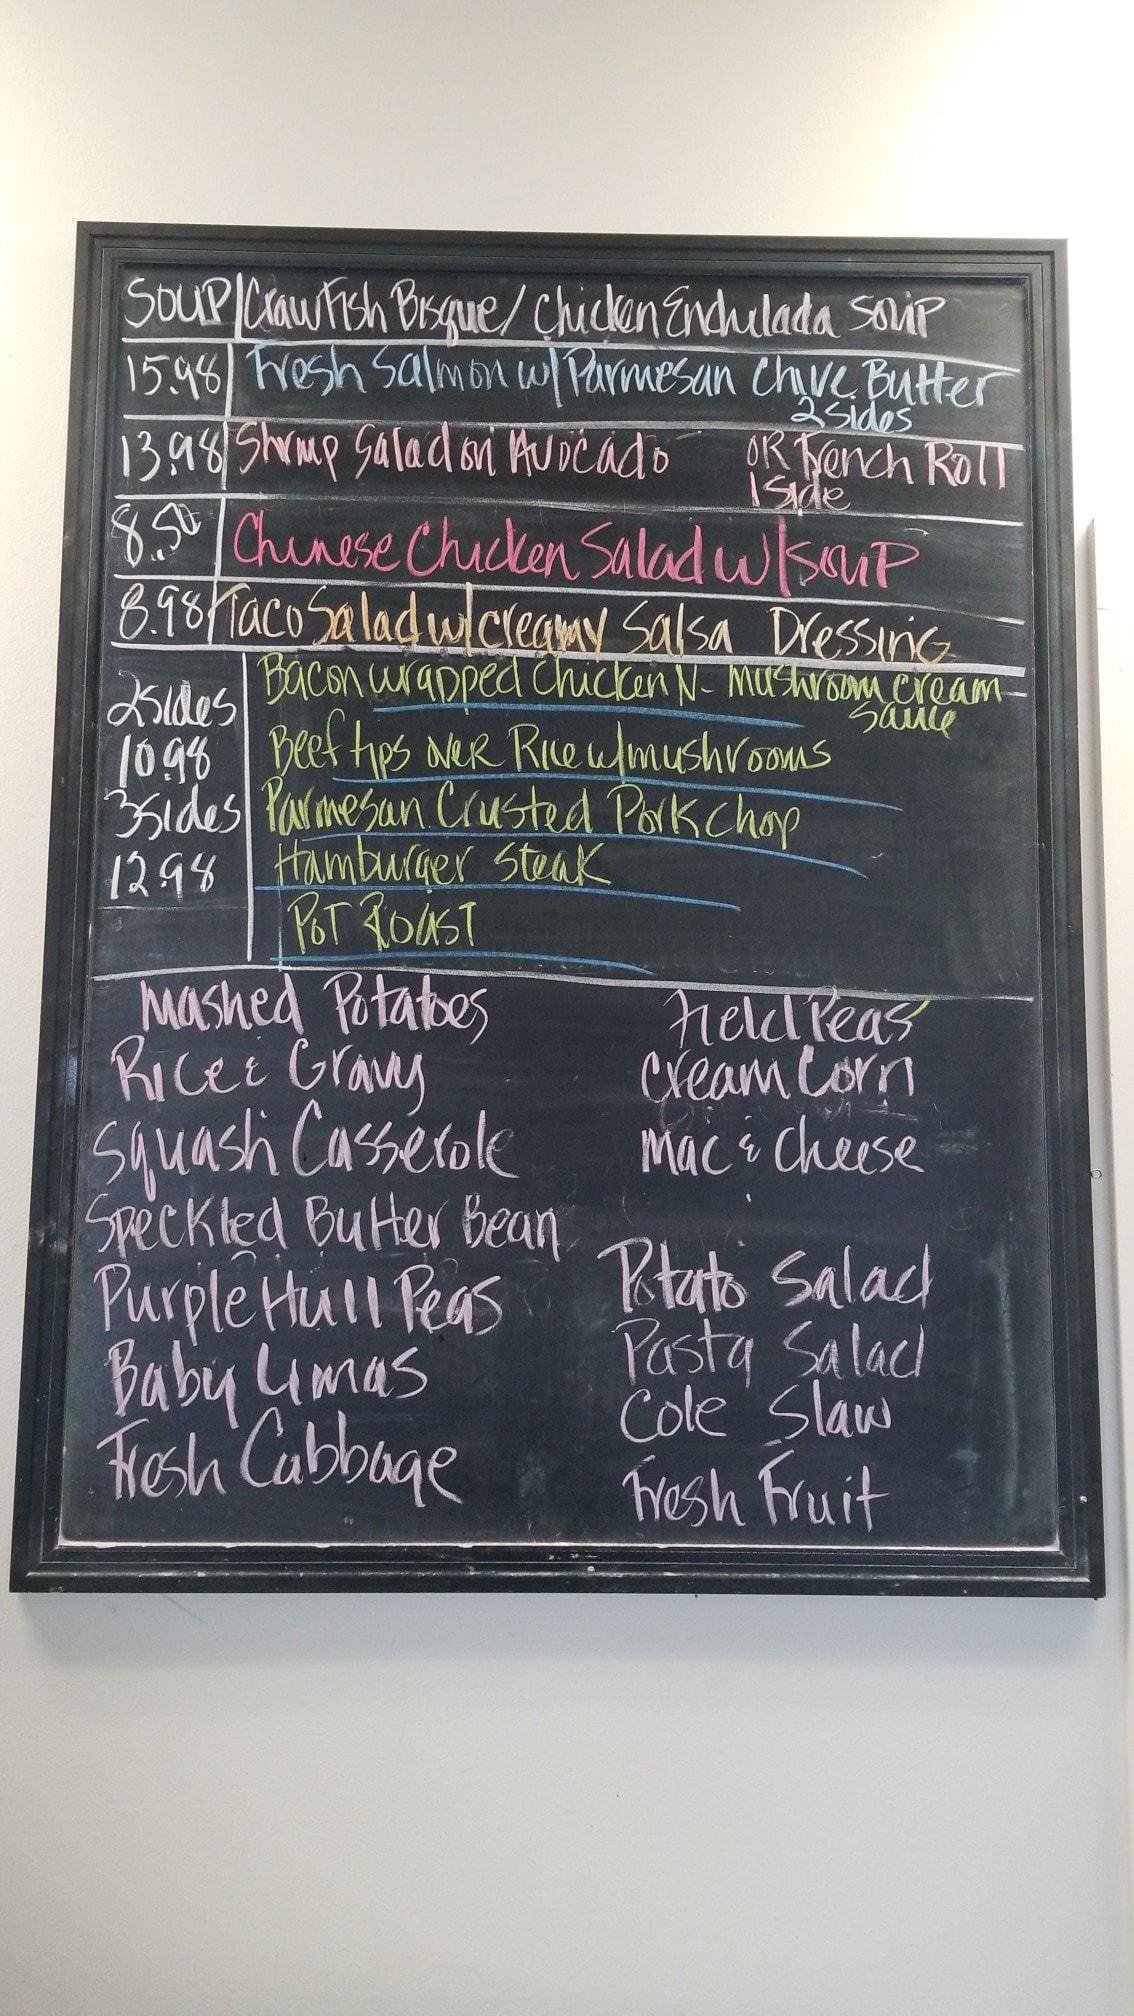 SOUP/Crawfish Bisque/Chicken Enchulada Soup
15.98 Fresh Salmon w/Parmesan Chive Butter
2 Sides
13.98 Shrimp Salad on Avocado OR French Roll
1 Side
8.50 Chinese Chicken Salad w/soup
8.98 Taco Salad w/creamy Salsa Dressing
Bacon wrapped Chicken N- mushroom cream
sauce
2 sides
10.98 Beef tips over Rice w/mushrooms
3 sides Parmesan Crusted Pork chop
12.98 Hamburger Steak
Pot Roast
Mashed Potatoes Field Peas
Rice & Gravy Cream Corn
Squash Casserole Mac & Cheese
Speckled Butter Bean
Purple Hull Peas Potato Salad
Baby Limas Pasta Salad
Cole Slaw
Fresh Cabbage Fresh Fruit